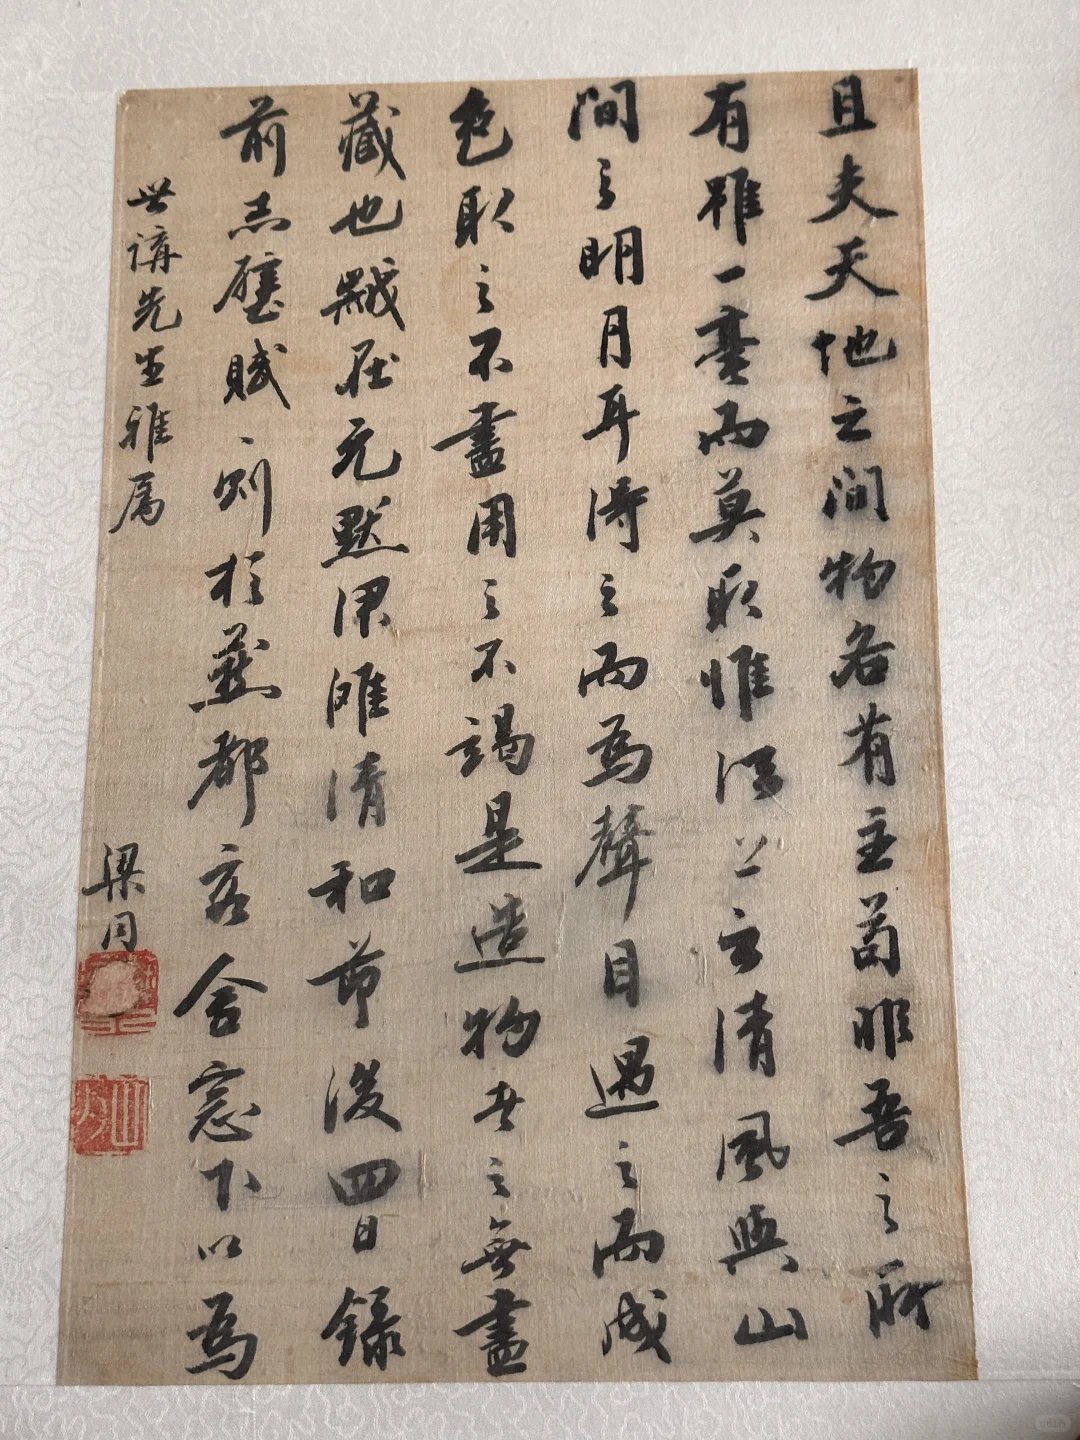 且夫天地之間物各有主苟非吾之所
有雖一毫而莫取惟江上之清風與山
間之明月耳得之而為聲目遇之而成
色取之不盡用之不竭是造物者之無盡
藏也歲在元黓涒灘清和節後四日錄
前赤壁賦一則於燕都客舍窓下以為
世講先生雅屬
梁同
山舟